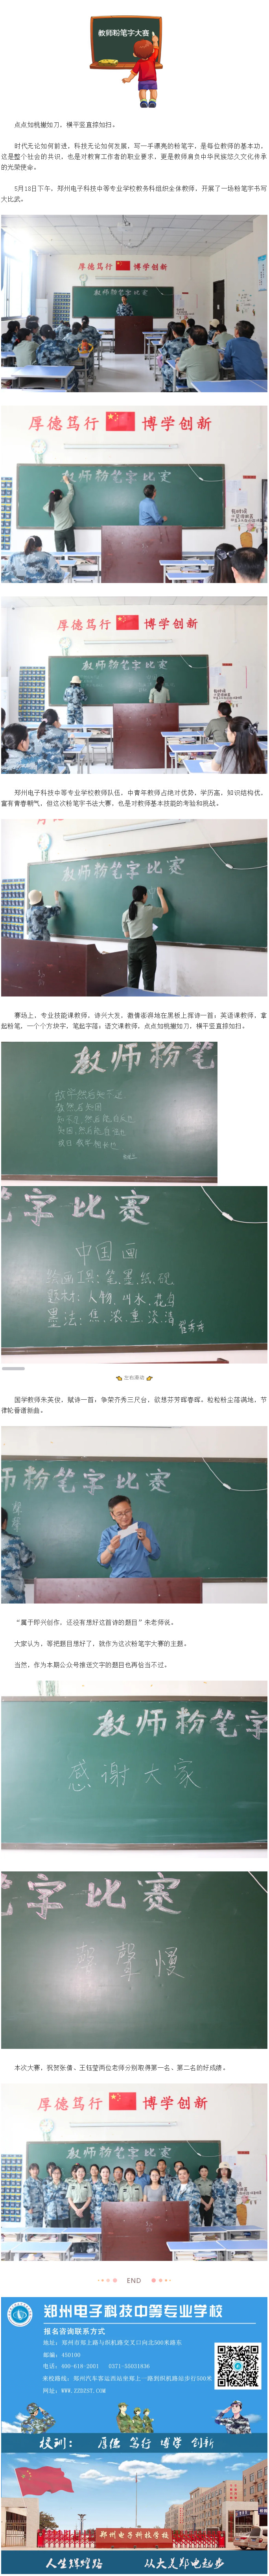 教师粉笔字大赛
点点如桃撇如刀、横平竖直捺如扫。
时代无论如何前进，科技无论如何发展，写一手漂亮的粉笔字，是每位教师的基本功，
这是整个社会的共识，也是对教育工作者的职业要求，更是教师肩负中华民族悠久文化传承
的光荣使命。
5月18日下午，郑州电子科技中等专业学校教务科组织全体教师，开展了一场粉笔字书写
大比武。
厚德笃行 博学创新
教师粉笔字比赛
厚德笃行 博学创新
教师粉笔字比赛
厚德笃行 博学创新
教师粉笔字比赛
郑州电子科技中等专业学校教师队伍，中青年教师占绝对优势，学历高、知识结构优、
富有青春朝气，但这次粉笔字书法大赛，也是对教师基本技能的考验和挑战。
教师粉笔字比赛
赛场上，专业技能课教师，诗兴大发，激情澎湃地在黑板上挥诗一首；英语课教师，拿
起粉笔，一个个方块字，笔起字落；语文课教师，点点如桃撇如刀、横平竖直捺如扫。
教师粉笔
笔字比赛
中国画
绘画工具：笔、墨、纸、砚
题材：人物、山水、花鸟
墨法：焦、浓、重、淡、清
左右滑动
国学教师朱英俊，赋诗一首：争荣齐秀三尺台，欲想芬芳晖春晖。粒粒粉尘落满地，节
律轮番谱新曲。
粉笔字比赛
“属于即兴创作，还没有想好这首诗的题目”朱老师说。
大家认为，等把题目想好了，就作为这次粉笔字大赛的主题。
当然，作为本期公众号推送文字的题目也再恰当不过。
教师粉笔字
感谢大家
笔字比赛
声声慢
本次大赛，祝贺张倩、王钰莹两位老师分别取得第一名、第二名的好成绩。
厚德笃行 博学创新
教师粉笔字比赛
END
郑州电子科技中等专业学校
报名咨询联系方式
地址：郑州市郑上路与织机路交叉口向北500米路东
邮编：450100
电话：400-618-2001 0371-55031836
来校路线：郑州汽车客运西站坐郑上一路到织机路站步行500米
网址：WWW.ZZDZST.COM
校训： 厚德 笃行 博学 创新
郑州电子科技学校
人生辉煌路 从大美郑电起步